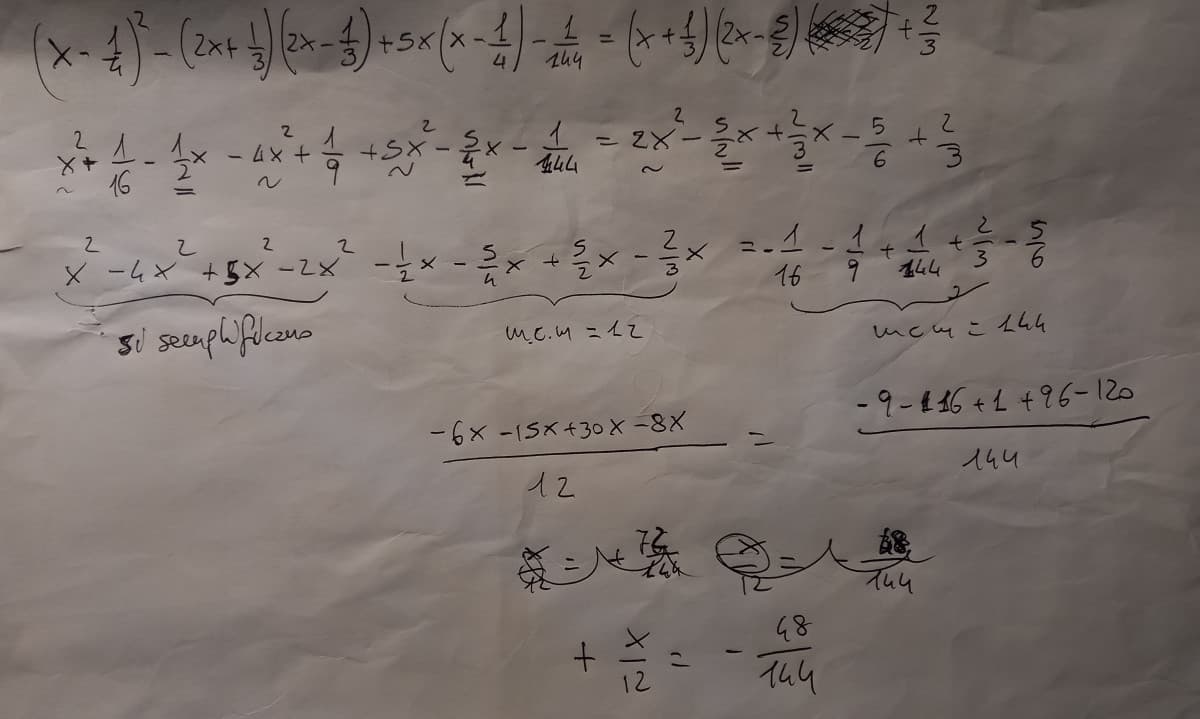 (x - 1/4)² - (2x + 1/3)(2x - 1/3) + 5x(x - 1/4) - 1/144 = (x + 1/3)(2x - 5/2) + 2/3
x² + 1/16 - 1/2x - 4x² + 1/9 + 5x² - 5/4x - 1/144 = 2x² - 5/2x + 2/3x - 5/6 + 2/3
x² - 4x² + 5x² - 2x² - 1/2x - 5/4x + 5/2x - 2/3x = - 1/16 - 1/9 + 1/144 + 2/3 - 5/6
si semplificano m.c.m = 12 m c m = 144
(-6x - 15x + 30x - 8x)/12 = (-9 - 16 + 1 + 96 - 120)/144
x/12 = + 72/144 x/12 = - 48/144
+ x/12 = - 48/144